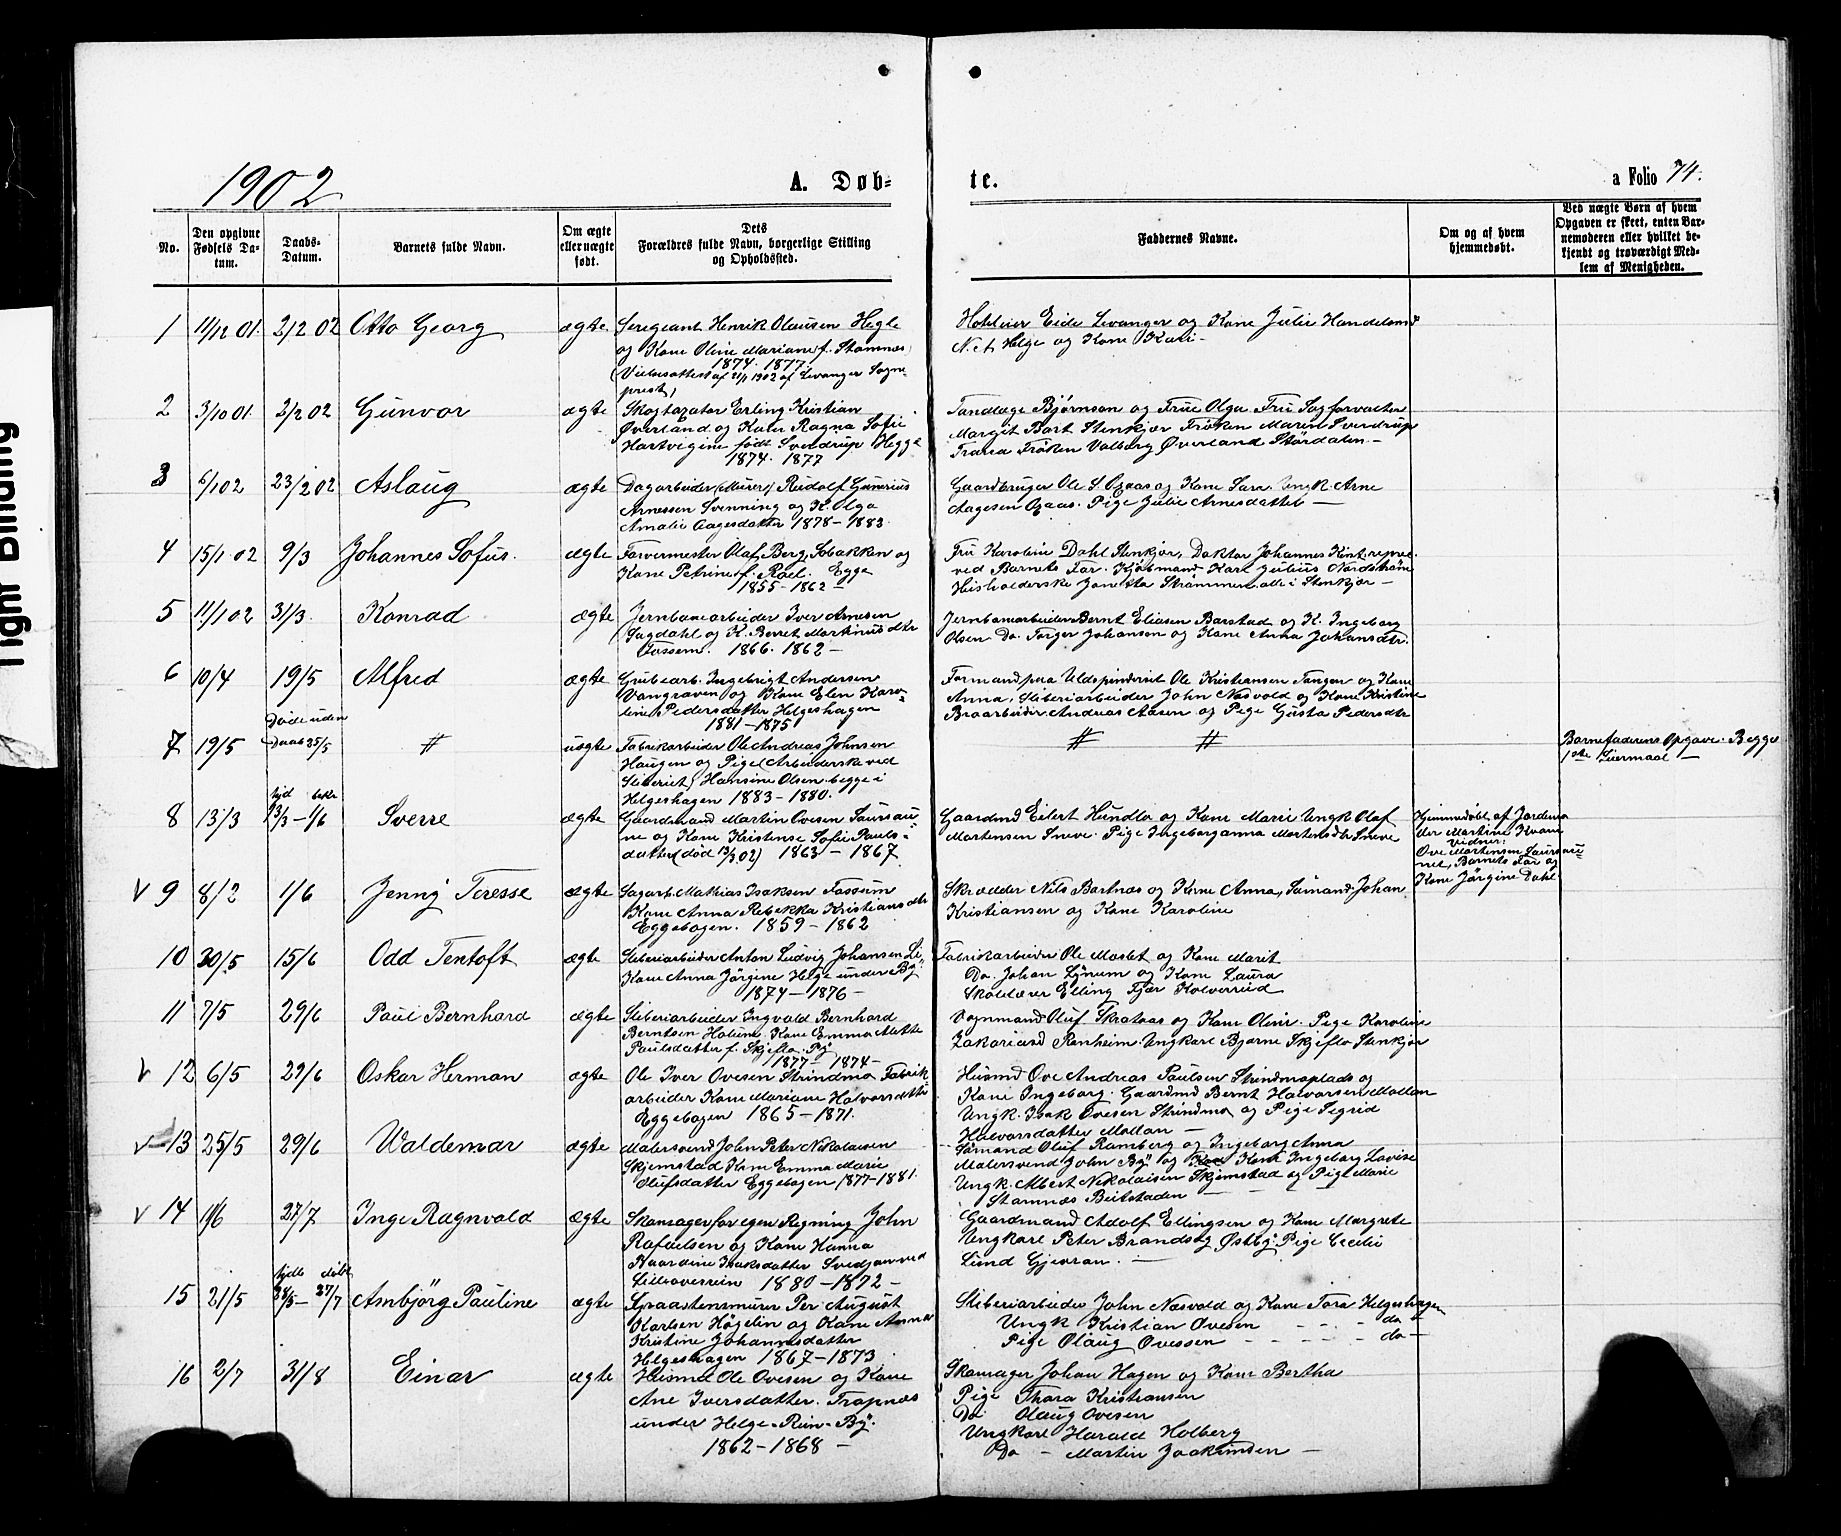 Tight Binding
1902
A. Døb-
te.
a Folio 74.
No.
Den opgivne
Fødsels Da-
tum.
Daabs-
Datum.
Barnets fulde Navn.
Om ægte
eller uægte
født.
Dets
Forældres fulde Navn, borgerlige Stilling
og Opholdssted.
Faddernes Navne.
Om og af hvem
hjemmedøbt.
Ved uægte Børn af hvem
Opgaven er skeet, enten Bar-
nemoderen eller hvilket be-
kjendt og troværdigt Med-
lem af Menigheden.
1 11/12 01. 2/2 02 Otto Georg ægte
Seregeant Henrik Olausen Hegle
og Kone Oline Mariane f. Stamnes
1874. 1877.
(Vielsesattest af 21/1 1902 af Levanger Sogne-
prest)
Hoteleier Eide Levanger og Kone Julie Handelsmd
N. et Helge og Kone Kari -
2 3/10 01. 2/2 02 Gunvor ægte
Skogtaxator Erling Kristian
Øverland og Kone Ragna Sofie
Hartvigine født Sverdrup Hegge
1874. 1877
Tandlæge Bjørnson og Frue Olga Fru Sagforvalter
Margit Bart Stenkjær Frøken Maren Sverdrup
Frøken Valborg Øverland Størdalen -
3 6/1 02 23/2 02 Aslaug ægte
Dagarbeider (Murer) Rudolf Gunerius
Arnessen Svenning og K. Olga
Amalie Aagesdatter 1878 - 1883.
Gaardbruger Ole S. Oxaas og Kone Sara. Ungk. Arne
Aagesen Oxaas. Pige Julie Arnesdatter -
4 15/1 02 9/3 Johannes Sofus. ægte
Farvermester Olaf Berg, Sobakken og
Kone Petrine f. Roel. Egge
1855 - 1862 -
Fru Karoline Dahl Stenkjær, Doktor Johannes
ved Barnets Far. Kjøbmand Karl Julius Nordstrøm
Husholderske Strømmen alle i Stenkjær -
5 11/1 02 31/3. Konrad ægte
Jernbanearbeider Iver Arnesen
Sagdahl og K. Berret Martinusdtr
Fossem. 1866. 1862 -
Jernbanearbeider Bernt Eliasen Barstad og K. Ingeborg
Olsen Do. Torger Johansen og Kone Anna Johansdtr.
6 10/4 19/5 Alfred ægte
Grubearb. Ingebrigt Andersen
Vangraven og Kone Elen Karo-
line Pedersdatter Helgeshagen
1881 - 1875
Formand paa Uldspinderiet Ole Kristiansen Tangen og Kone
Anna, Sliberiarbeider John Næsvold og Kone Kristine
Bruarbeider Andreas Aasen og Pige Gusta Pedersdtr
7 19/5 Døde uden
Daab 25/5 # uægte
Fabrikarbeider Ole Andreas Johnsen
Haugen og Pige (Arbeiderske ved
Sliberiet) Hansine Olsen begge i
Helgeshagen 1883 - 1880.
# #
Barnefaderens Opgave. Begges
1ste Leiermaal -
8 13/3 hjd bekr
13/3 - 1/6 Sverre ægte
Gaardmand Martin Ovesen Saursau-
ne og Kone Kristense Sofie Pauls-
datter (død 13/3 02) 1863 - 1867
Gaardmd Eilert Hundlo og Kone Marie Ungk Olaf
Martensen Sneve. Pige Ingeborganna Martensdtr Sneve
Hjemmedøbt af Jordemo-
der Martine Kvam
Vidner:
Ove Martensen Saursau-
net, Barnets Far og
Kone Jørgine Dahl.
V 9 8/2 1/6 Jenny Teresse ægte
Sagarb. Mathias Isaksen Fossum
Kone Anna Rebekka Kristiansdtr
Eggebogen. 1859 - 1862
Skrædder Nils Bartnæs og Kone Anna, Sømand Johan
Kristiansen og Kone Karoline
10 20/5 15/6 Odd Tentoft ægte
Sliberiarbeider Anton Ludvig Johansen Li
Kone Anna Jørgine Helge under By
1874 - 1876 -
Fabrikarbeider Ole Moslet og Kone Marit
Do. Johan Lynum og Kone Laura
Skolelærer Elling Fjær Kolverreid
11 7/5 29/6 Paul Bernhard ægte
Sliberiarbeider Ingvald Bernhard
Berntsen Holum, Kone Emma Mette
Paulsdatter f. Skjeflo. By
1877 - 1874 -
Vognmand Oluf Skrataas og Kone Oline. Pige Karoline
Zakariasd Renheim. Ungkarl Bjarne Skjeflo Stenkjær
V 12 6/5 29/6 Oskar Herman ægte
Ole Iver Ovesen Strindmo Fabrik-
arbeider Kone Mariane Halvorsdatter
Eggebogen 1865 - 1871.
Husmd Ove Andreas Paulsen Strindmoplads og
Kone Ingeborg. Gaardmd Bernt Halvorsen Mollan
Ungk. Isak Ovesen Strindmo og Pige Sigrid
Halvorsdatter Mollan -
V 13 25/5 29/6 Waldemar ægte
Malersvend John Peter Nikolaisen
Skjemstad Kone Emma Marie
Olufsdatter Eggebogen 1877-1881.
Sømand Oluf Ramberg og Ingeborg Anna
Malersvend John By og Kone Ingeborg Lovise
Ungk. Albert Nikolaisen Skjemstad og Pige Marie
Stamnæs Beitstaden -
V 14 1/6 27/7 Inge Ragnvald ægte
Skomager for egen Regning John
Rafaelsen og Kone Hanna
Baardine Isaksdatter Svedjan ved
1880 - 1872 -
Gaardmand Adolf Ellingsen og Kone Margrete
Ungkarl Peter Brandseg Østby. Pige Cecilie
Lund Gjævran. -
15 21/5 hjdb døbt
28/5 - 27/7 Arnbjörg Pauline ægte
Graastensmurer Per August
Karlsen Høgelin og Kone Anna
Kristine Johannesdatter
Helgeshagen 1867 - 1873.
Sliberiarbeider John Næsvold og Kone Tora Helgeshagen
Ungk Kristian Ovesen - - - do -
Pige Olaug Ovessen - - - do -
16 2/7 31/8 Einar ægte
Husmd Ole Ovesen og Kone
Ane Iversdatter. Trapnes
under Helge-Rein-By.
1862 - 1868 -
Skomager Johan Hagen og Kone Bertha
Pige Thora Kristiansen
Do Olaug Ovesen
Ungkarl Harald Holberg
Do - Martin Joakimsen -